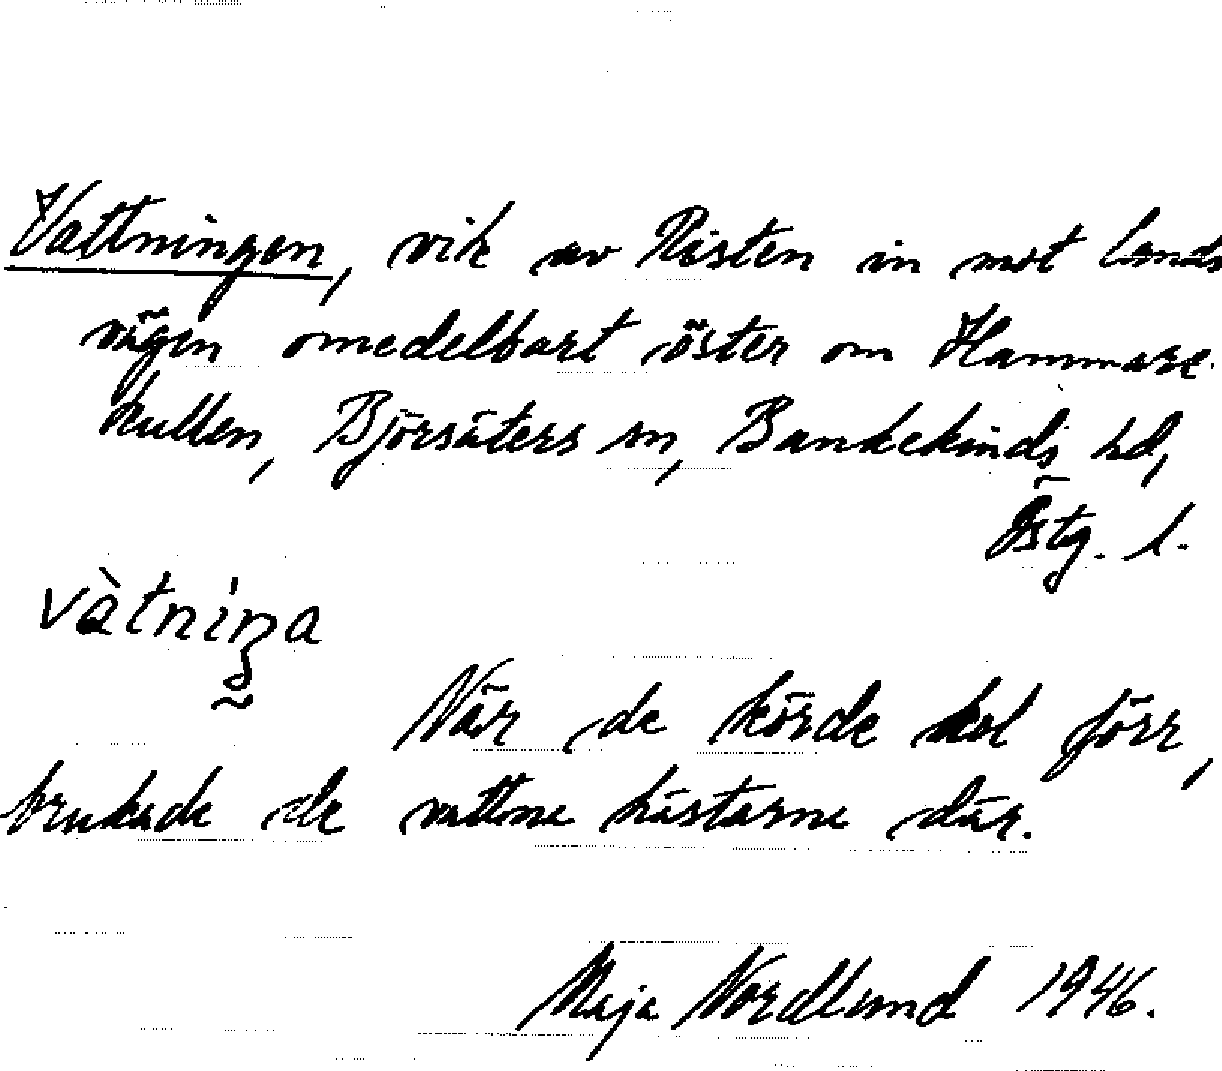 Vattningen, vik av Risten in mot lands
vägen omedelbart öster om Hammare
kullen, Björsäters sn, Bankekinds hd,
Östg. l.
vàtniŋa
När de körde kol förr,
brukade de vattna hästarna där.
Maja Nordlund 1946.